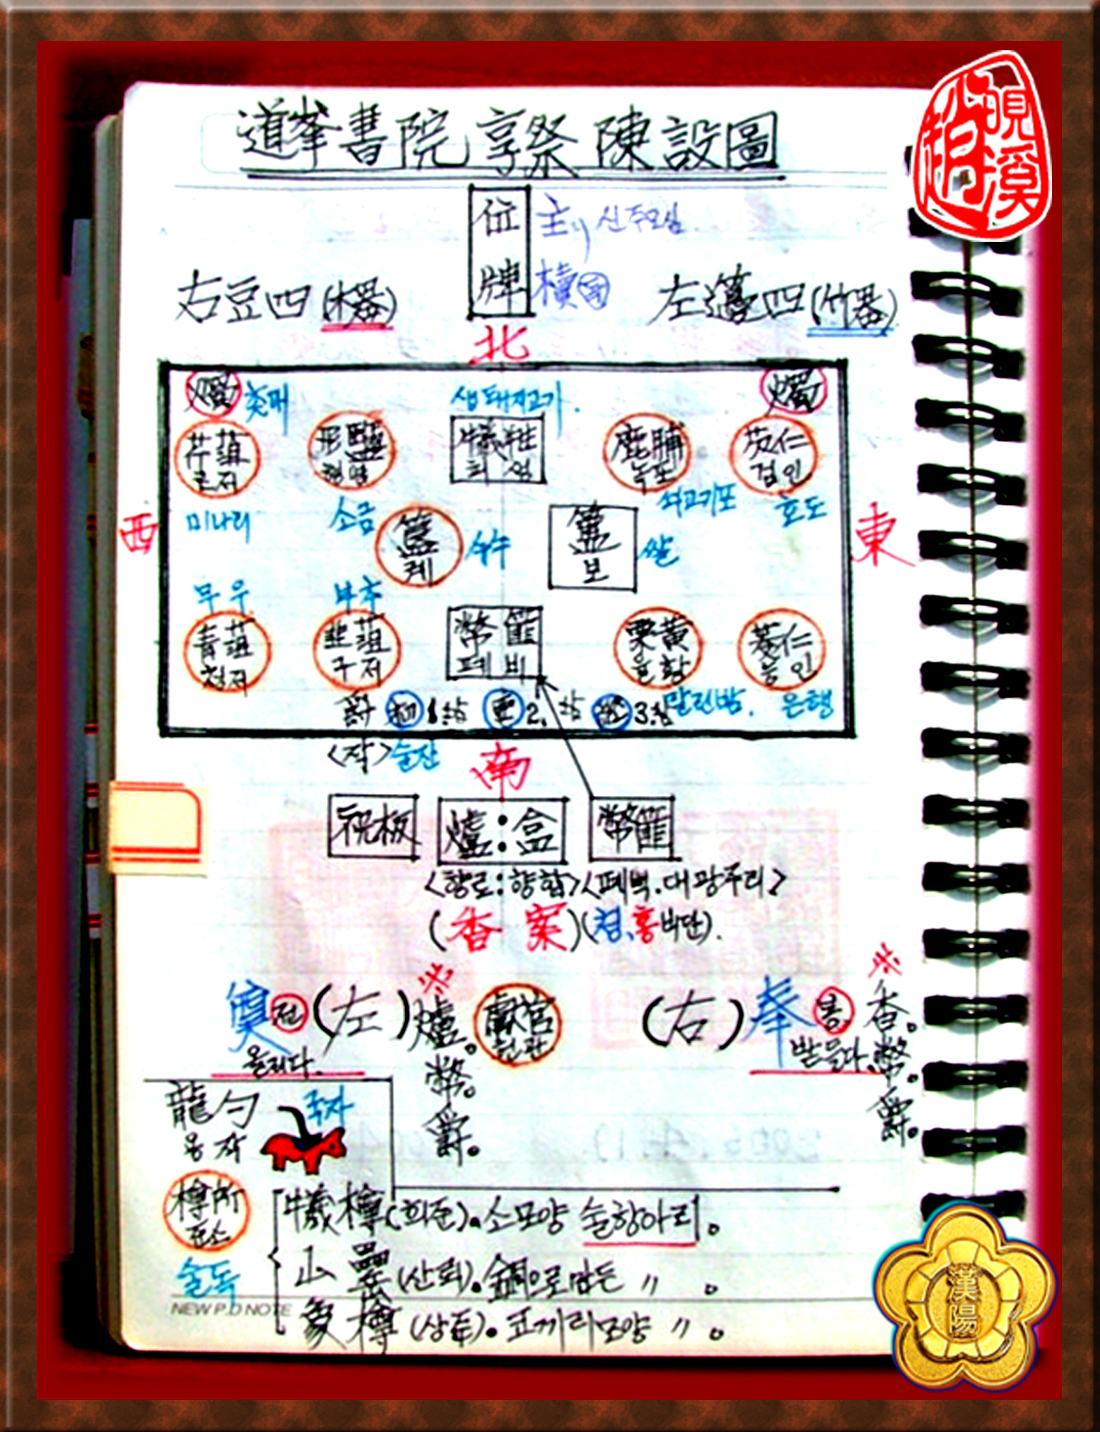 道峯書院 享祭 陳設圖
趙 峴溪
位牌
主 신주모심
櫝
右豆四(木器)
左籩四(竹器)
北
燭 촛대
생돼지고기.
燭
芹菹 근저
形鹽 형염
犧牲 희생
鹿脯 녹포
芡仁 검인
미나리
소금
쇠고기포
호도
西
簋 궤
수수
簠 보
쌀
東
무우
부추
靑菹 청저
韭菹 구저
幣篚 폐비
栗黃 율황
菱仁 능인
爵 初 1. 亞 2. 終 3.
말린밤. 은행
<작> 술잔
南
祝板
爐:盒
幣篚
<향로:향합> <폐백.대광주리>
(香案) (청,홍비단).
奠 전 (左) 爐.幣.爵.
올리다.
獻官 헌관
(右) 奉 봉 香.幣.爵.
받들다.
龍勺 용작
국자
樽所 준소
술독
犧樽(희준).소모양 술항아리.
山罍(산뢰).銅으로만든 〃.
象樽(상준).코끼리모양 〃.
NEW P.D NOTE
漢陽